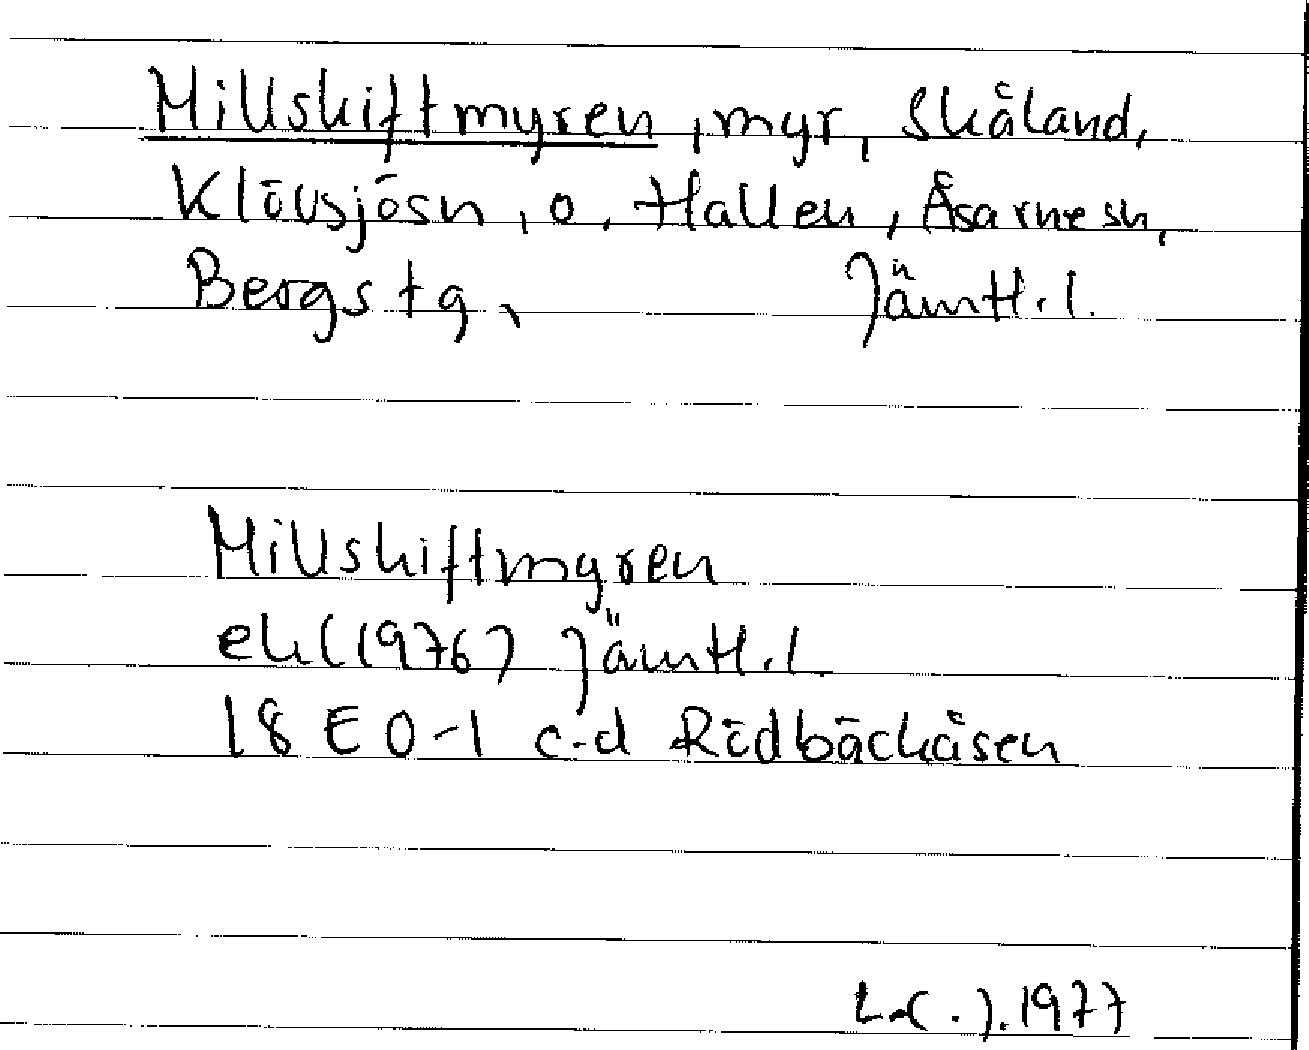 Millskiftmyren, myr, Skåland,
Klövsjösn, o. Hallen, Åsarnesn,
Bergs tg, Jämtl. l.
Millskiftmyren
ek (1976) Jämtl. l
18 E 0-1 c-d Rödbäckåsen
1977